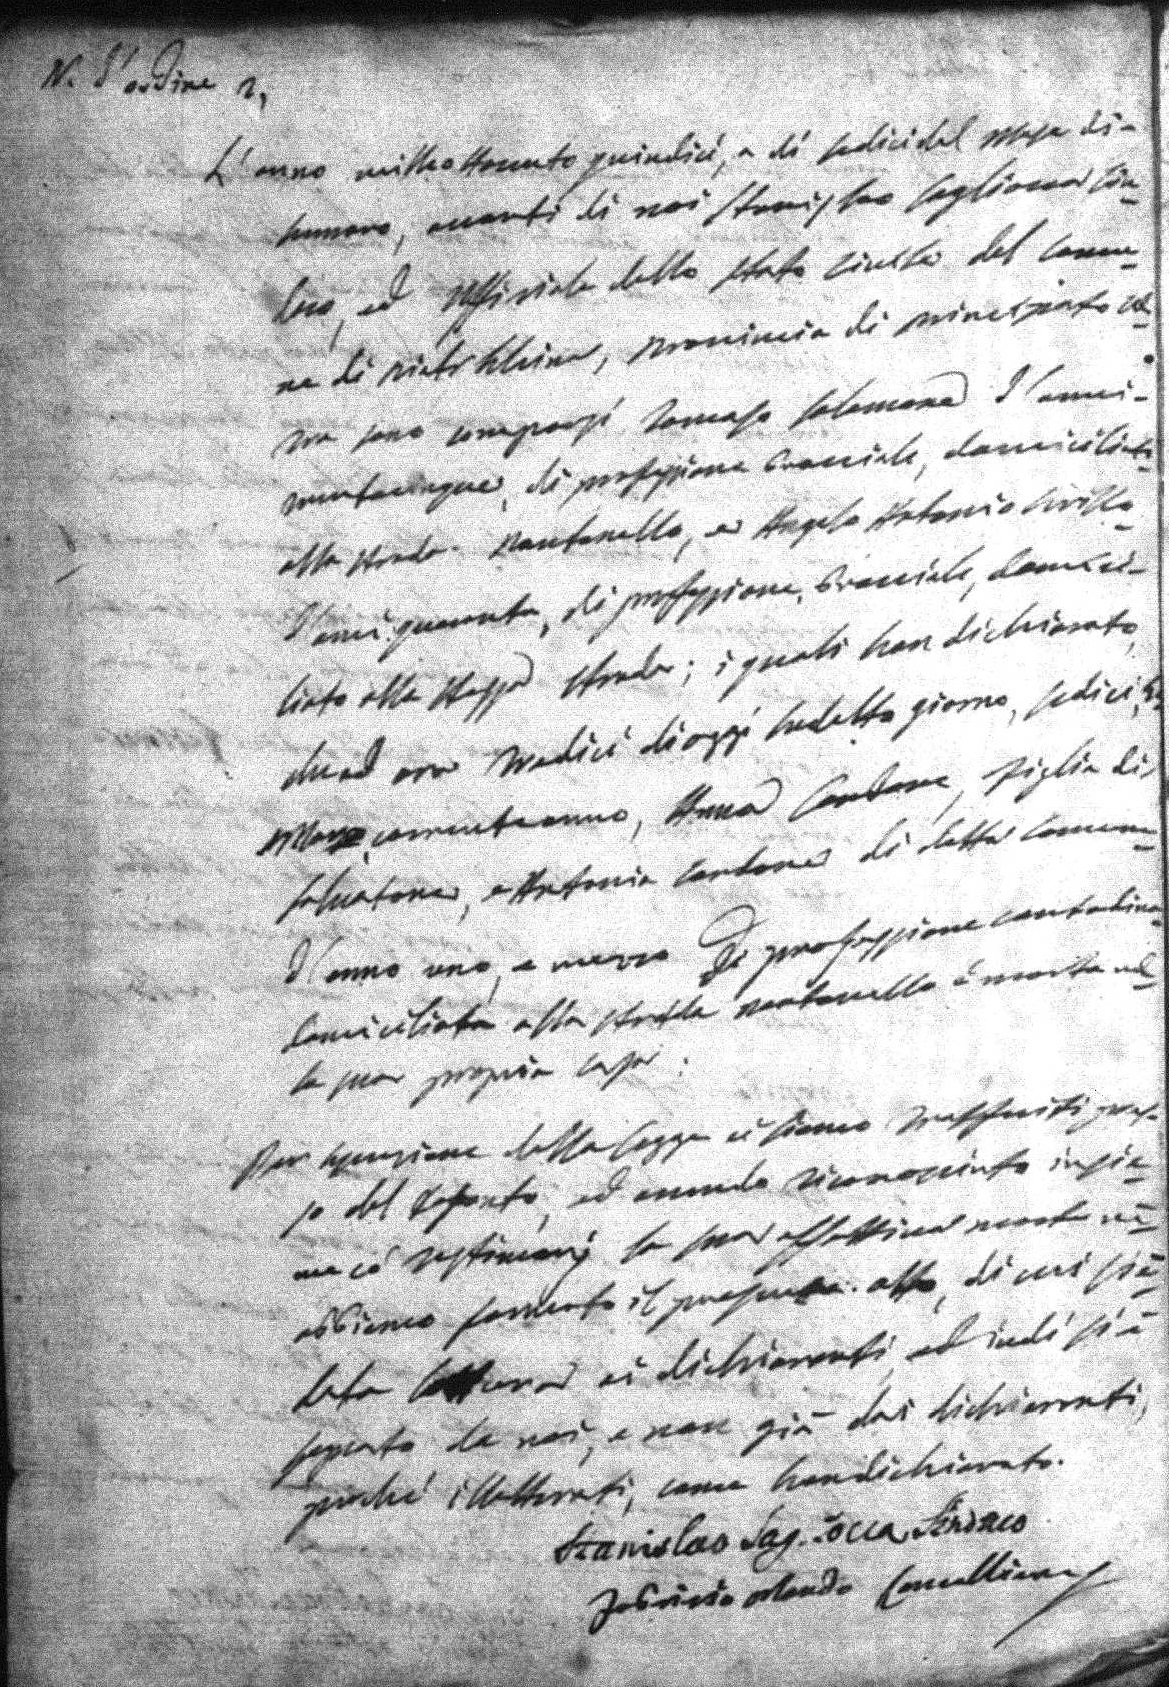 N. d'ordine 2,
L'anno milleottocento quindici, a dì sedici del mese di
Gennaro, avanti di noi Stanislao Sagliocca Sin-
daco, ed Uffiziale dello stato civile del comu-
ne di Pietrelcina, Provincia di Principato ul-
tra sono comparsi Tomaso Salomone d'anni
trentacinque, di professione bracciale, domiciliato
alla strada Pantanella, ed Angelo Antonio Crillo
d'anni quaranta, di professione, bracciale, domici-
liato alla stessa strada; i quali han dichiarato,
che ad ore tredici di oggi sudetto giorno, sedici,
corrente anno, Anna Cardone, figlia di
Salvatore, e Antonia Cardone di detto Comune
d'anno uno, e mezzo di professione contadina
domiciliata alla strada Pantanella è morta nel
la sua propria casa.
Per esecuzione della legge ci siamo trasferiti pres-
so del defonto, ed avendo riconosciuto insie-
me co' testimonj la sua effettiva morte ne
abbiamo formato il presente atto, di cui si è
data lettura ai dichiaranti, ed indi si è
segnato da noi, e non già dai dichiaranti,
perché illetterati, come han dichiarato.
Stanislao Sagliocca Sindaco
Fabrizio Orlando Cancelliere